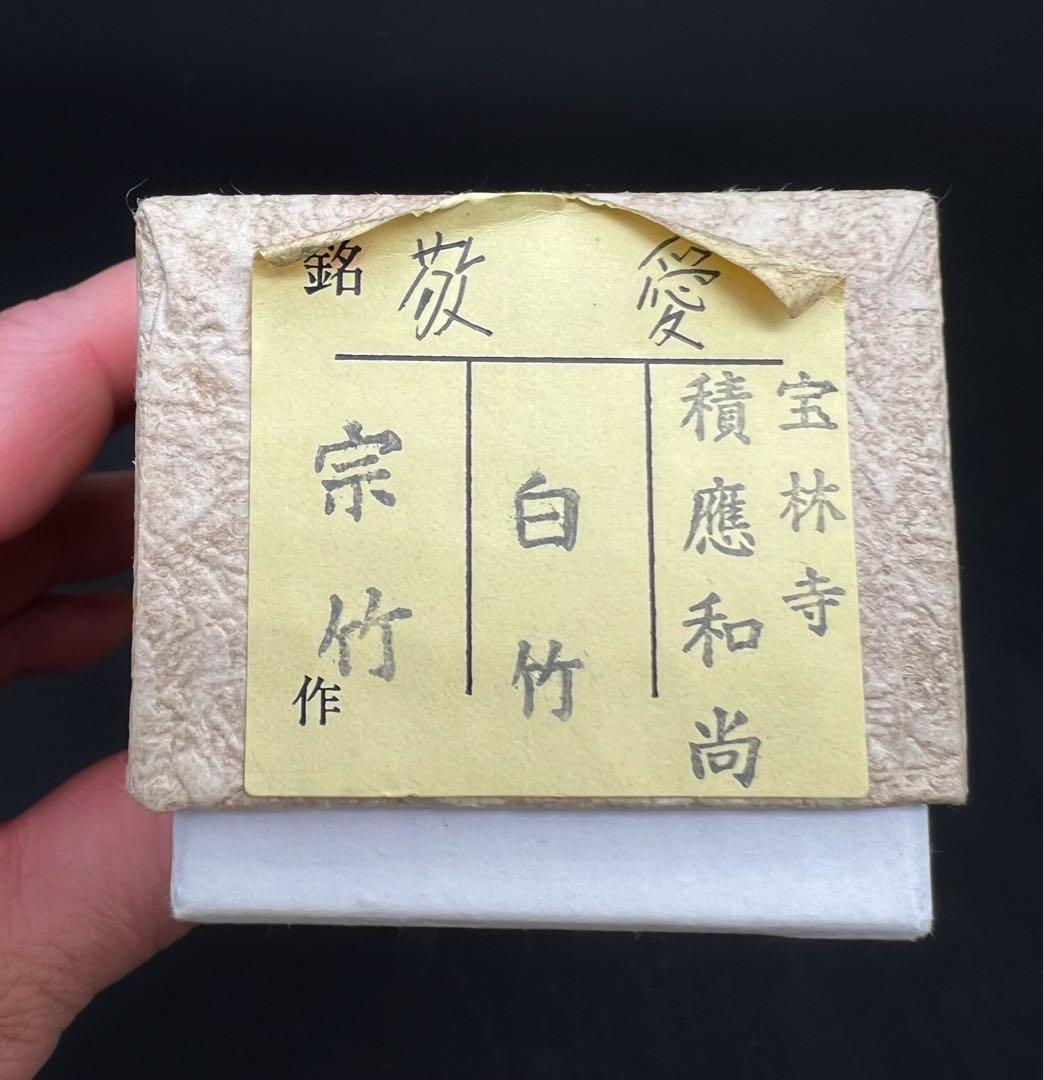 銘 敬愛
宝林寺
積應和尚
白竹
宗竹
作